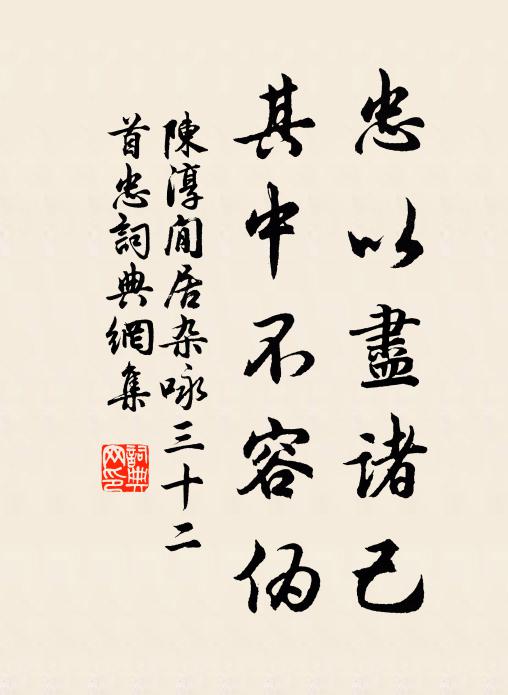 忠以盡諸己
其中不容偽
陳淳閒居杂咏三十二
首忠詞典網集
詞典
网印